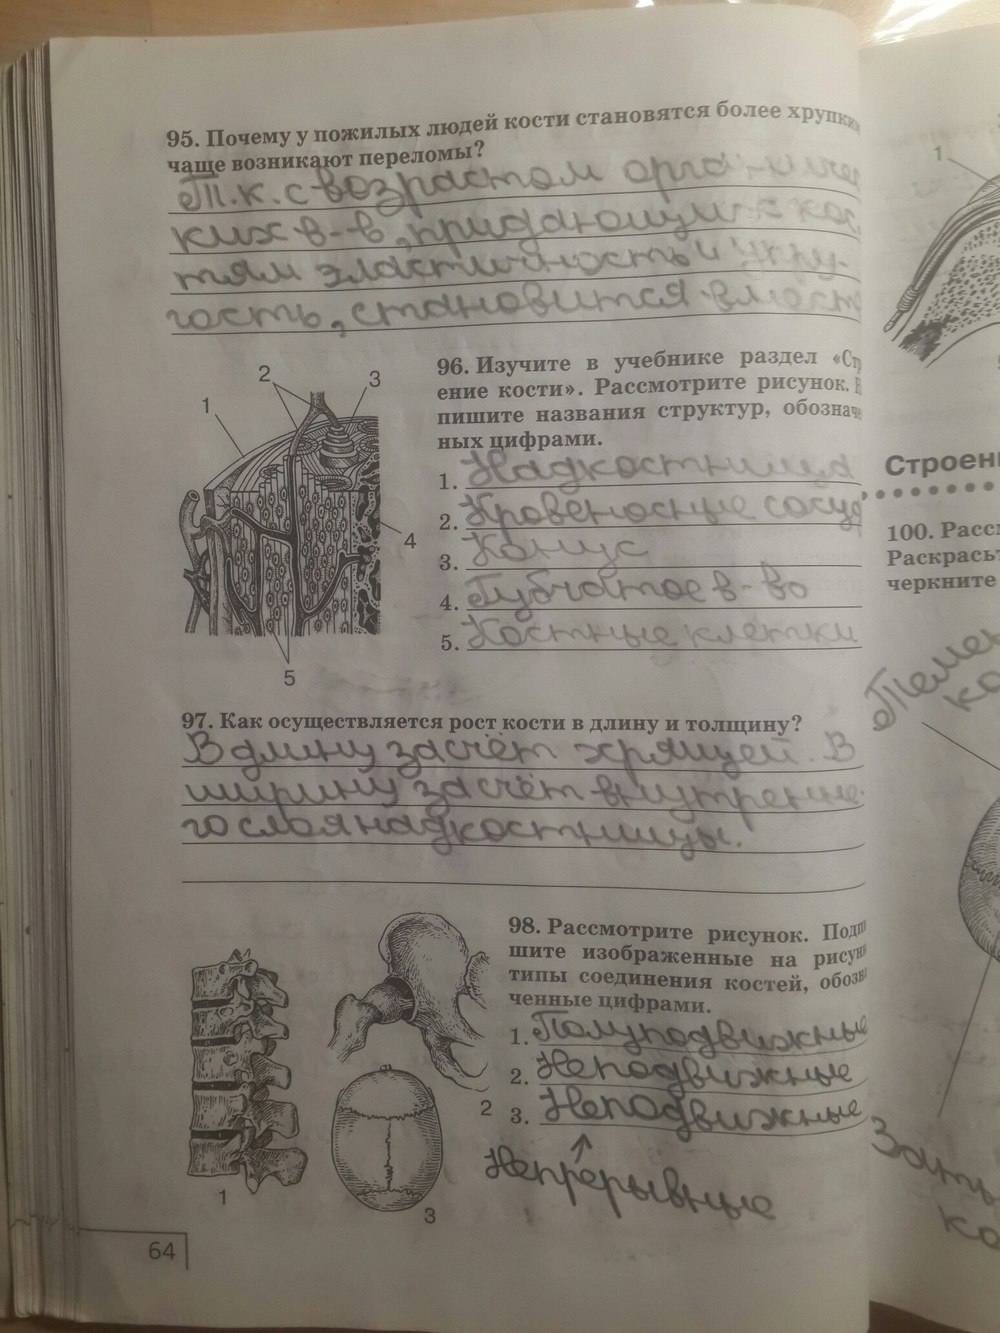 95. Почему у пожилых людей кости становятся более хрупки
чаще возникают переломы?
Т.к. с возрастом
ких в-в, придающих кос
тям эластичность и упру-
гость, становится
1
2
3
4
5
96. Изучите в учебнике раздел «Стр
ение кости». Рассмотрите рисунок.
пишите названия структур, обознач
ных цифрами.
1. Надкостница
2. Кровеносные сосуд
3. Конус
4. Губчатое в-во
5. Костные клетки
97. Как осуществляется рост кости в длину и толщину?
В длину засчёт хрящей. В
ширину засчёт внутренне-
го слоя надкостницы.
98. Рассмотрите рисунок. Подп
шите изображенные на рисун
типы соединения костей, обозн
ченные цифрами.
1. Полуподвижные
2. Неподвижные
3. Неподвижные
Непрерывные
1
2
3
64
1
Строен
100. Расс
Раскрась
черкните
Темен
ко
Заты
ко